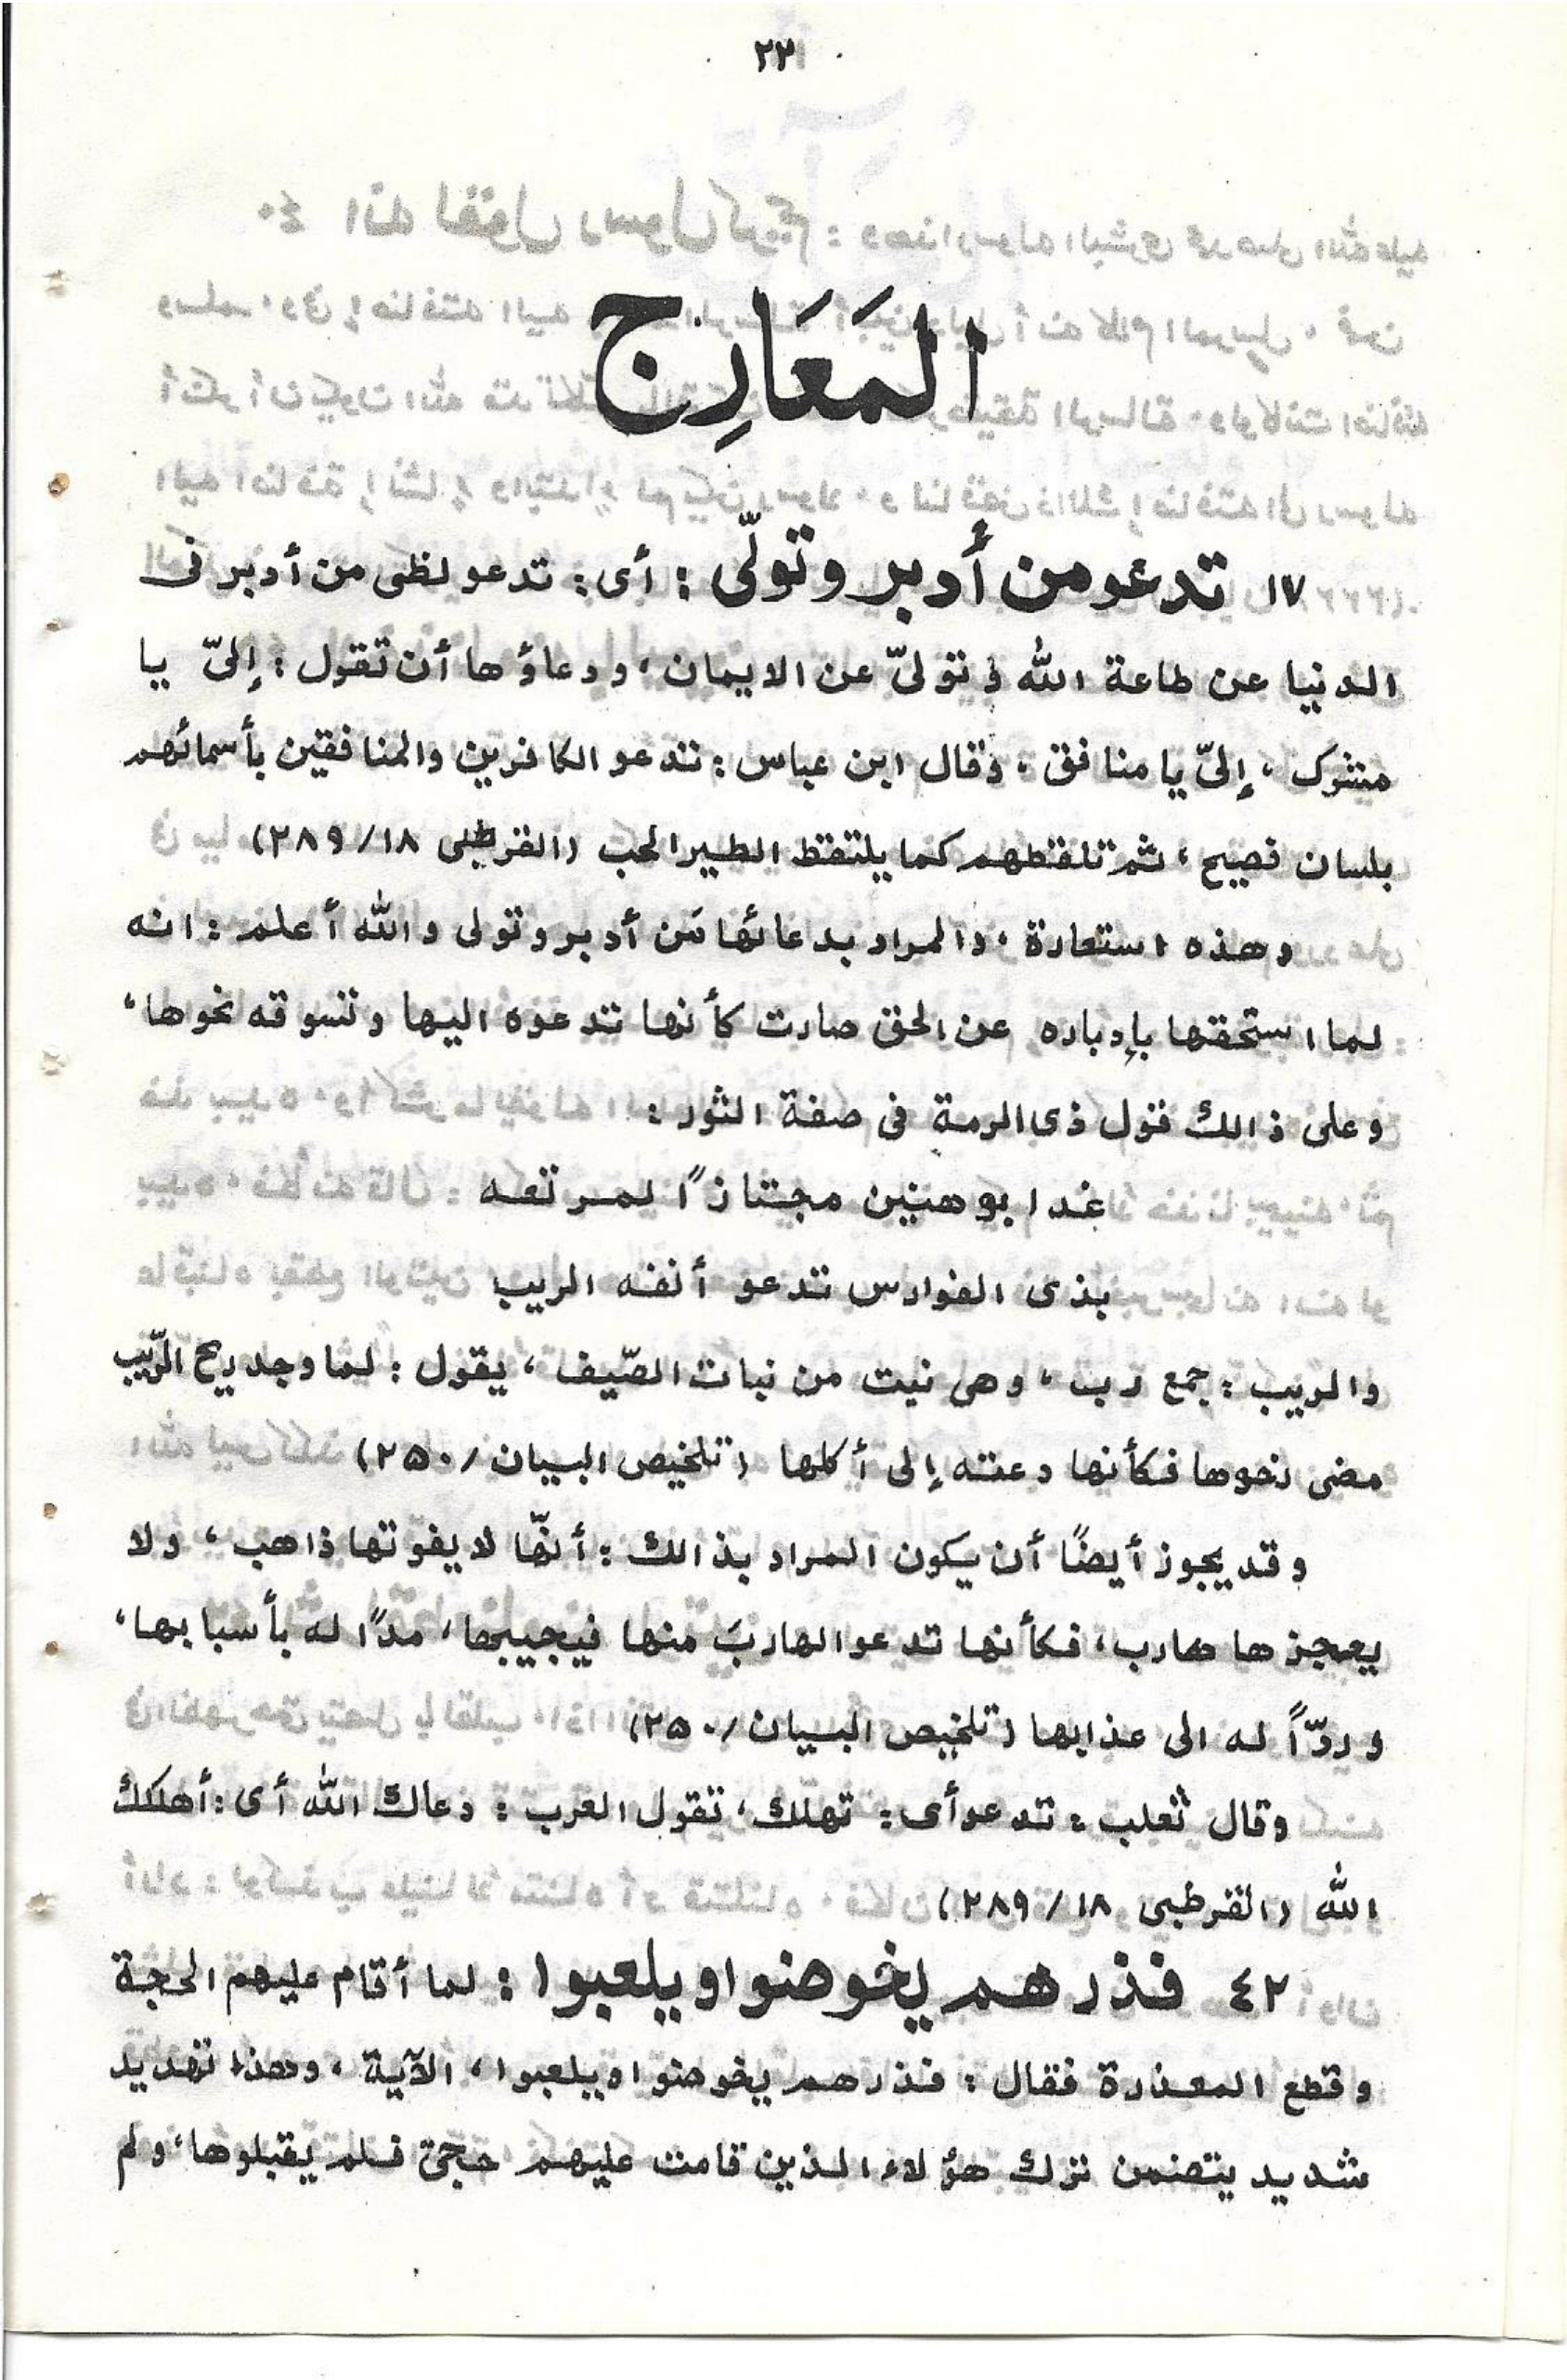 ٢٢
المَعَارِج
١٧ تدعو من أدبر وتولّى : أى : تدعو لظى من أدبر فى
الدنيا عن طاعة الله وتولىّ عن الايمان ، ودعاؤها أن تقول : إلىّ يا
مشرك ، إلىّ يا منافق ، وقال ابن عباس : تدعو الكافرين والمنافقين بأسمائهم
بلسان فصيح ، ثم تلقطهم كما يلتقط الطير الحب (القرطبى ١٨/٢٨٩)
وهذه استعارة ، والمراد بدعائها مَن أدبر وتولى والله أعلم : انه
لما استحقها بإدباره عن الحق صارت كأنها تدعوه اليها وتسوقه نحوها ،
وعلى ذالك قول ذى الرمة فى صفة الثور :
غدا بوهبين مجتازًا لمرتعه
بذى الفوارس تدعو أنفه الربب
والربب : جمع ربة ، وهى نبت من نبات الصّيف ، يقول : لما وجد ريح الرّبب
مضى نحوها فكأنها دعته إلى أكلها (تلخيص البيان/٢٥٠)
وقد يجوز أيضًا أن يكون المراد بذالك : أنهّا لا يفوتها ذاهب ، ولا
يعجزها هارب ، فكأنها تدعو الهاربَ منها فيجيبها ، مدًّا له بأسبابها ،
وردّاً له الى عذابها (تلخيص البيان/٢٥٠)
وقال ثعلب : تدعو أى : تهلك ، تقول العرب : دعاك الله أى : أهلكك
الله (القرطبى ١٨/٢٨٩)
٤٢ فذرهم يخوضوا ويلعبوا : لما أقام عليهم الحجة
وقطع المعذرة فقال : فذرهم يخوضوا ويلعبوا ، الآية ، وهذا تهديد
شديد يتضمن ترك هؤلاء الذين قامت عليهم حجتى فلم يقبلوها ، ولم